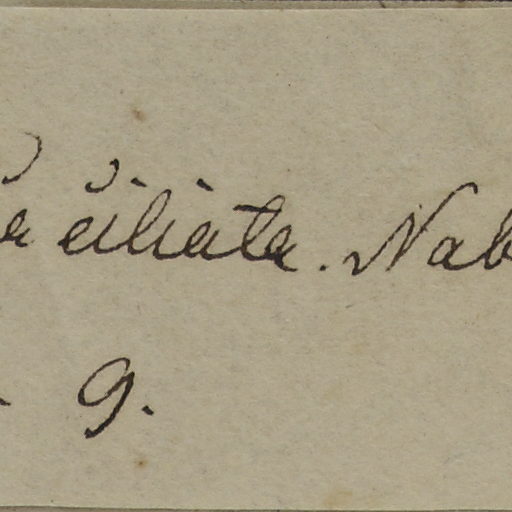 ciliata. Nab
9.